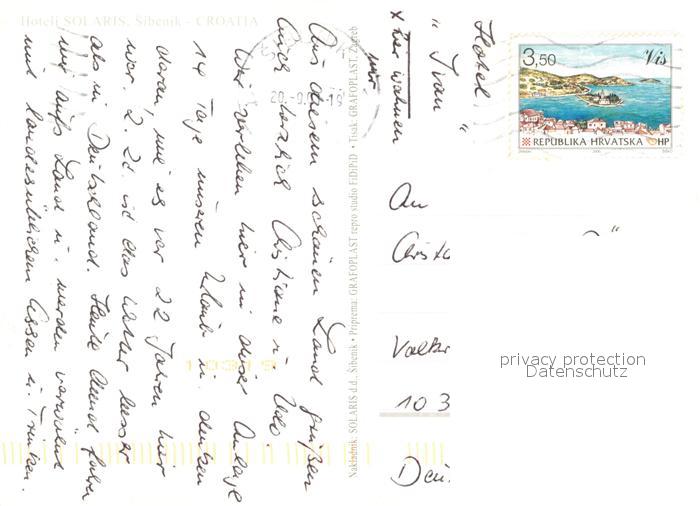 Hoteli SOLARIS, Šibenik - CROATIA
Aus diesem schönen Land grüßen
Euch herzlich Christiane u. Udo
Wir verleben hier in dieser Anlage
14 Tage unseren Urlaub u. denken
daran, wie es vor 22 Jahren hier
war. Z. Zt. ist das Wetter besser
als in Deutschland. Heute Abend fahren
wir aufs Land u. werden verwöhnt
mit landesüblichem Essen u. Trinken.
Nakladnik: SOLARIS d.d., Šibenik • Priprema: GRAFOPLAST repro studio FiDiPiD • Tisak: GRAFOPLAST, Zagreb
Hotel
"Ivan"
x hier wohnen
wir
3,50
Vis
REPUBLIKA HRVATSKA HP
An
Volker
10 3
privacy protection
Datenschutz
10319